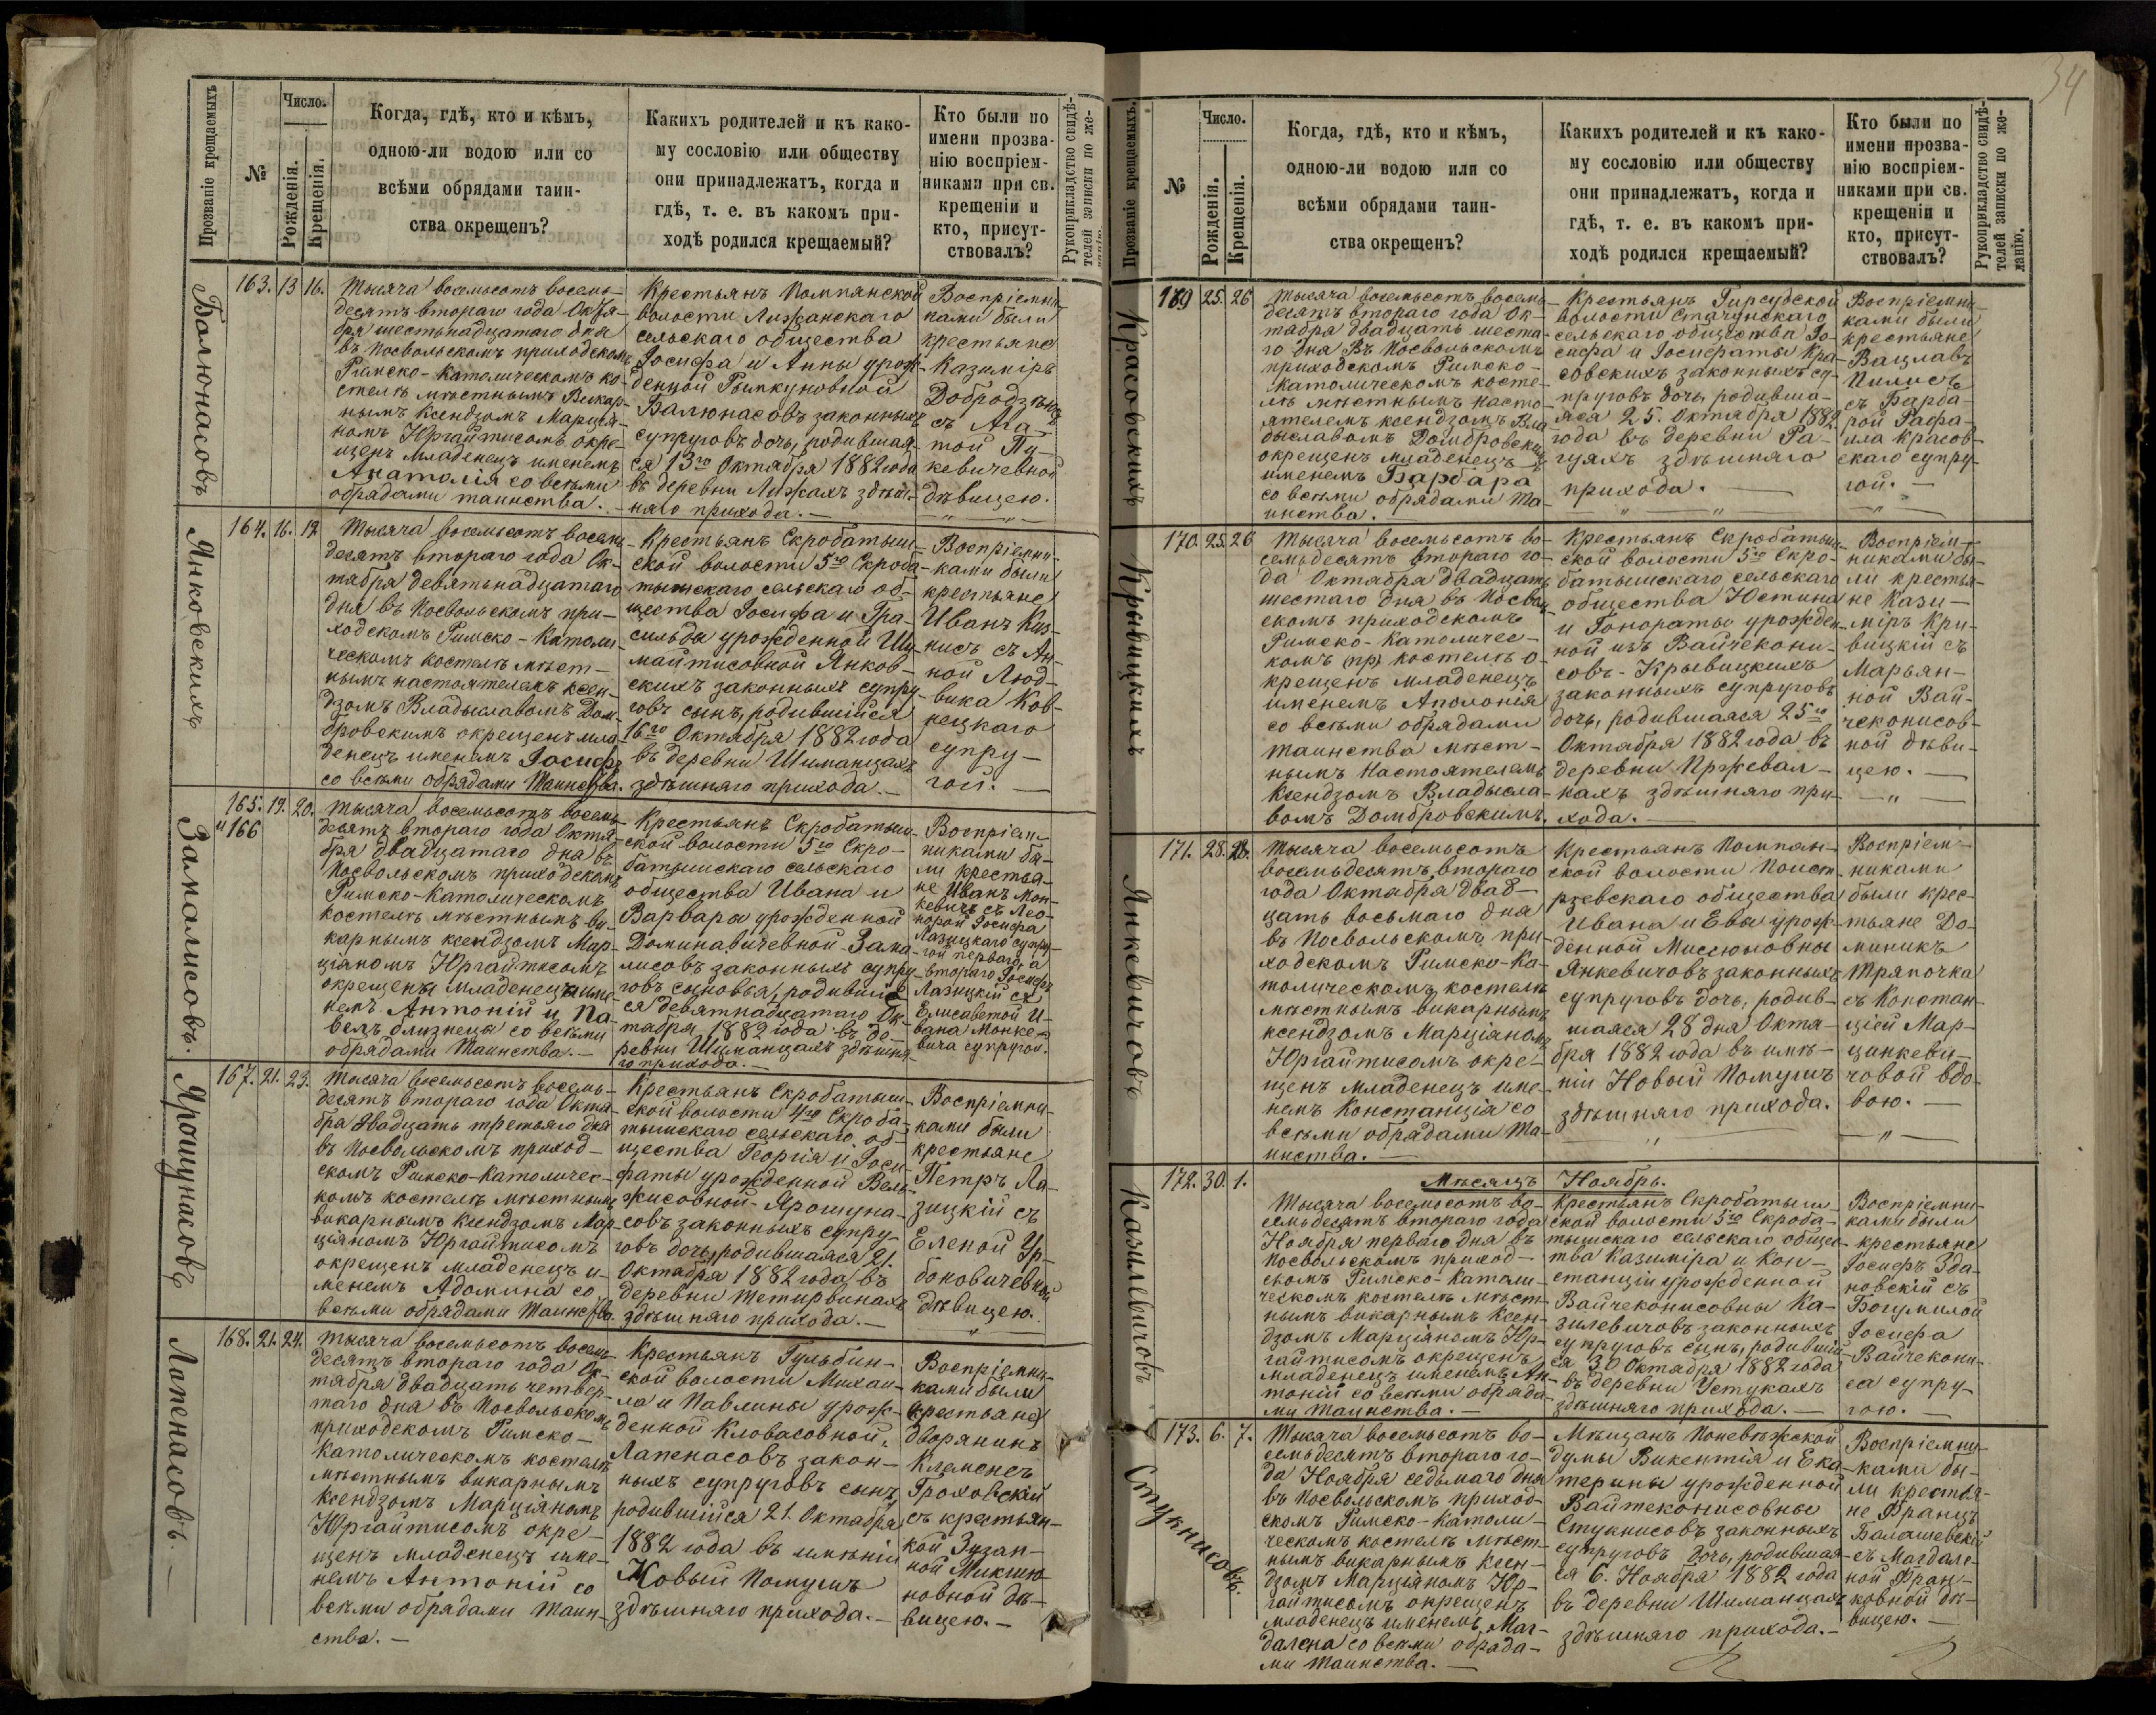 34
Прозваніе крещаемыхъ
№
Число.
Рожденія.
Крещенія.
Когда, гдѣ, кто и кѣмъ,
одною-ли водою или со
всѣми обрядами таин-
ства окрещенъ?
Какихъ родителей и къ како-
му сословію или обществу
они принадлежатъ, когда и
гдѣ, т. е. въ какомъ при-
ходѣ родился крещаемый?
Кто были по
имени прозва-
нію воспріем-
никами при св.
крещеніи и
кто, присут-
ствовалъ?
Рукоприкладство свидѣ-
телей записки по же-
Балюнасовъ
163. 13 16.
Тысяча восемьсотъ восемь-
десятъ втораго года Октя-
бря шестьнадцатаго дня
въ Посвольскомъ приходскомъ
Римско-Католическомъ ко-
стелѣ мѣстнымъ Викар-
нымъ Ксендзомъ Марція-
номъ Юргайтисомъ окре-
щенъ Младенецъ именемъ
Анатолія со всѣми
обрядами таинства.
Крестьянъ Помпянской
волости Лижанскаго
сельскаго общества
Іосифа и Анны урож-
денной Рымкуновной
Балюнасовъ законныхъ
супруговъ дочь, родившая-
ся 13го Октября 1882 года
въ деревни Лижахъ здѣш-
няго прихода.—
Воспріемни-
ками были
крестьяне
Казиміръ
съ Ага-
той Пу-
кевичевной
дѣвицею.
Янковскихъ
164. 16. 19.
Тысяча восемьсотъ восемь-
десятъ втораго года Ок-
тября девятьнадцатаго
дня въ Посвольскомъ при-
ходскомъ Римско-Католи-
ческомъ костелѣ мѣст-
нымъ настоятелемъ ксен-
дзомъ Владыславомъ Дом-
бровскимъ окрещенъ мла-
денецъ именемъ Іосифъ
со всѣми обрядами Таинства.
Крестьянъ Скробатыш-
ской волости 5го Скроба-
тышскаго сельскаго об-
щества Іосифа и Гра-
сильды урожденной Ши-
майтисовной Янков-
скихъ законныхъ супру-
говъ сынъ, родившійся
16го Октября 1882 года
въ деревни Шиманцахъ
здѣшняго прихода.—
Воспріемни-
ками были
крестьяне
Иванъ Киз-
нисъ съ Ан-
ной Люд-
вика Ков-
нецкаго
супру-
гой.—
Запалисовъ.
165. 19. 20.
и 166
Тысяча восемьсотъ восемь-
десятъ втораго года Октя-
бря двадцатаго дня въ
Посвольскомъ приходскомъ
Римско-Католическомъ
костелѣ мѣстнымъ ви-
карнымъ ксендзомъ Мар-
ціяномъ Юргайтисомъ
окрещены младенецы име-
немъ Антоній и Па-
велъ близнецы со всѣми
обрядами Таинства.—
Крестьянъ Скробатыш-
ской волости 5го Скро-
батышскаго сельскаго
общества Ивана и
Варвары урожденной
Доминавичевной-Запа-
лисовъ законныхъ супру-
говъ сыновья, родившіе-
ся девятнадцатаго Ок-
тября 1882 года въ де-
ревни Шиманцахъ здѣшня-
го прихода.—
Воспріем-
никами бы-
ли крестья-
не Иванъ Мон-
кевичъ съ Лео-
норой Іосифа
Лазицкаго супру-
гой перваго, а
втораго Іосифъ
Лазицкій съ
Елисаветой И-
вана Монке-
вича супругой.
Ярошунасовъ
167. 21. 23.
Тысяча восемьсотъ восемь-
десятъ втораго года Октя-
бра двадцать третьяго дня
въ Посвольскомъ приход-
скомъ Римско-Католичес-
комъ костелѣ мѣстнымъ
викарнымъ Ксендзомъ Мар-
ціяномъ Юргайтисомъ
окрещенъ младенецъ и-
менемъ Адолина со
всѣми обрядами Таинства.
Крестьянъ Скробатыш-
ской волости 4го Скроба-
тышскаго сельскаго об-
щества Георгія и Іоси-
фаты урожденной Вель-
жисовной-Ярошуна-
совъ законныхъ супру-
говъ дочь, родившаяся 21.
Октября 1882 года въ
деревни Тетирвинахъ
здѣшняго прихода.—
Воспріемни-
ками были
крестьяне
Петръ Ла-
зицкій съ
Еленой Ур-
боновичевной
дѣвицею.
Лапенасовъ.—
168. 21. 24.
Тысяча восемьсотъ восемь-
десятъ втораго года Ок-
тября двадцать четвер-
таго дня въ Посвольскомъ
приходскомъ Римско-
Католическомъ костелѣ
мѣстнымъ викарнымъ
Ксендзомъ Марціяномъ
Юргайтисомъ окре-
щенъ младенецъ име-
немъ Антоній со
всѣми обрядами Таин-
ства.—
Крестьянъ Гульбин-
ской волости Михаи-
ла и Павлины урож-
денной Кловасовной,
Лапенасовъ закон-
ныхъ супруговъ сынъ,
родившійся 21. Октября
1882 года въ имѣніи
Новый Помушъ
здѣшняго прихода.—
Воспріемни-
ками были
(крестьяне)
дворянинъ
Клеменсъ
Гроховскій
съ крестьян-
кой Зузан-
ной Микшю-
новной дѣ-
вицею.—
Прозваніе крещаемыхъ.
№
Число.
Рожденія.
Крещенія.
Когда, гдѣ, кто и кѣмъ,
одною-ли водою или со
всѣми обрядами таин-
ства окрещенъ?
Какихъ родителей и къ како-
му сословію или обществу
они принадлежатъ, когда и
гдѣ, т. е. въ какомъ при-
ходѣ родился крещаемый?
Кто были по
имени прозва-
нію воспріем-
никами при св.
крещеніи и
кто, присут-
ствовалъ?
Рукоприкладство свидѣ-
телей записки по же-
ланію.
Красовскихъ
169 25. 26
Тысяча восемьсотъ восемь-
десятъ втораго года Ок-
тября двадцать шеста-
го дня Въ Посвольскомъ
приходскомъ Римско-
Католическомъ косте-
лѣ мѣстнымъ насто-
ятелемъ ксендзомъ Вла-
дыславомъ Домбровскимъ
окрещенъ младенецъ
именемъ Барбара
со всѣми обрядами Та-
инства.—
Крестьянъ Гирсудской
волости
сельскаго общества Іо-
сифа и Іосифаты Кра-
совскихъ законныхъ су-
пруговъ дочь, родивша-
яся 25. Октября 1882
года въ деревни Ра-
гуяхъ здѣшняго
прихода.—
Воспріемни-
ками были
крестьяне
Вацлавъ
съ Барба-
рой Рафа-
ила Красов-
скаго супру-
гой.—
Крывицкихъ
170. 25. 26
Тысяча восемьсотъ во-
семьдесятъ втораго го-
да Октября двадцать
шестаго дня въ Посволь-
скомъ приходскомъ
Римско-Католичес-
комъ (пр) костелѣ о-
крещенъ младенецъ
именемъ Аполонія
со всѣми обрядами
таинства мѣст-
нымъ Настоятелемъ
Ксендзомъ Владысла-
вомъ Домбровскимъ.
Крестьянъ Скробатыш-
ской волости 5го Скро-
батышскаго сельскаго
общества Юстина
и Гонораты урожден-
ной изъ Вайчекони-
совъ-Крывицкихъ
законныхъ супруговъ
дочь, родившаяся 25го
Октября 1882 года въ
деревни Пржевал-
кахъ здѣшняго при-
хода.—
Воспріем-
никами бы-
ли крестья-
не Кази-
міръ Кри-
вицкій съ
Марьян-
ной Вай-
чеконисов-
ной дѣви-
цею.—
Янкевичовъ
171. 28. 28.
Тысяча восемьсотъ
восемьдесятъ втораго
года Октября двад-
цать восьмаго дня
въ Посвольскомъ при-
ходскомъ Римско-Ка-
толическомъ костелѣ
мѣстнымъ викарнымъ
ксендзомъ Марціяномъ
Юргайтисомъ окре-
щенъ младенецъ име-
немъ Констанція со
всѣми обрядами Та-
инства.—
Крестьянъ Помпян-
ской волости
общества
Ивана и Евы урож-
денной Мисюновны
Янкевичовъ законныхъ
супруговъ дочь, родив-
шаяся 28 дня Октя-
бря 1882 года въ имѣ-
ніи Новый Помушъ
здѣшняго прихода.
Воспріем-
никами
были крес-
тьяне До-
миникъ
Тряпочка
съ Констан-
ціей Мар-
цинкеви-
човой вдо-
вою.—
Мѣсяцъ Ноябрь.
Казилевичовъ
172. 30. 1.
Тысяча восемьсотъ во-
семьдесятъ втораго года
Ноября перваго дня въ
Посвольскомъ приход-
скомъ Римско-Католи-
ческомъ костелѣ мѣст-
нымъ викарнымъ Ксен-
дзомъ Марціяномъ Юр-
гайтисомъ окрещенъ
младенецъ именемъ Ан-
тоній со всѣми обряда-
ми таинства.—
Крестьянъ Скробатыш-
ской волости 5го Скроба-
тышскаго сельскаго общес-
тва Казиміра и Кон-
станціи урожденной
Вайчеконисовны Ка-
зилевичовъ законныхъ
супруговъ сынъ, родившій-
ся 30 Октября 1882 года
въ деревни Устукахъ
здѣшняго прихода.—
Воспріемни-
ками были
крестьяне
Іосифъ Зда-
новскій съ
Богумилой
Іосифа
Вайчекони-
са супру-
гою.—
Стукнисовъ.
173. 6. 7.
Тысяча восемьсотъ во-
семьдесятъ втораго го-
да Ноября седьмаго дня
въ Посвольскомъ приход-
скомъ Римско-Католи-
ческомъ костелѣ мѣст-
нымъ викарнымъ Ксен-
дзомъ Марціяномъ Юр-
гайтисомъ окрещенъ
младенецъ именемъ Маг-
далена со всѣми обряда-
ми таинства.—
Мѣщанъ Поневѣжской
думы Викентія и Ека-
терины урожденной
Вайтеконисовны
Стукнисовъ законныхъ
супруговъ дочь, родившая-
ся 6. Ноября 1882 года
въ деревни Шиманцахъ
здѣшняго прихода.—
Воспріемни-
ками бы-
ли крестья-
не Францъ
Валашевскій
съ Магдале-
ной Фран-
ковной дѣ-
вицею.—